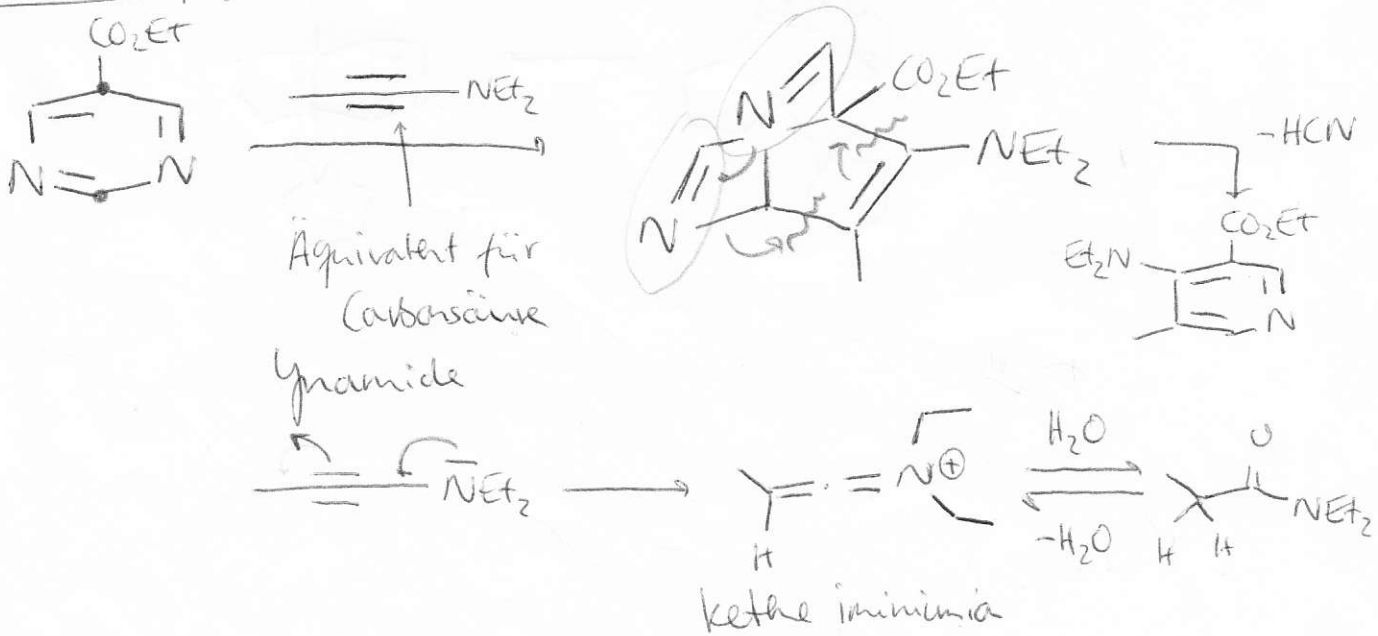 CO₂Et
N N
NEt₂
Äquivalent für
Carbonsäure
Ynamide
N CO₂Et
N NEt₂
-HCN
CO₂Et
Et₂N
N
NEt₂
H
N⊕
H₂O
-H₂O
O
NEt₂
H H